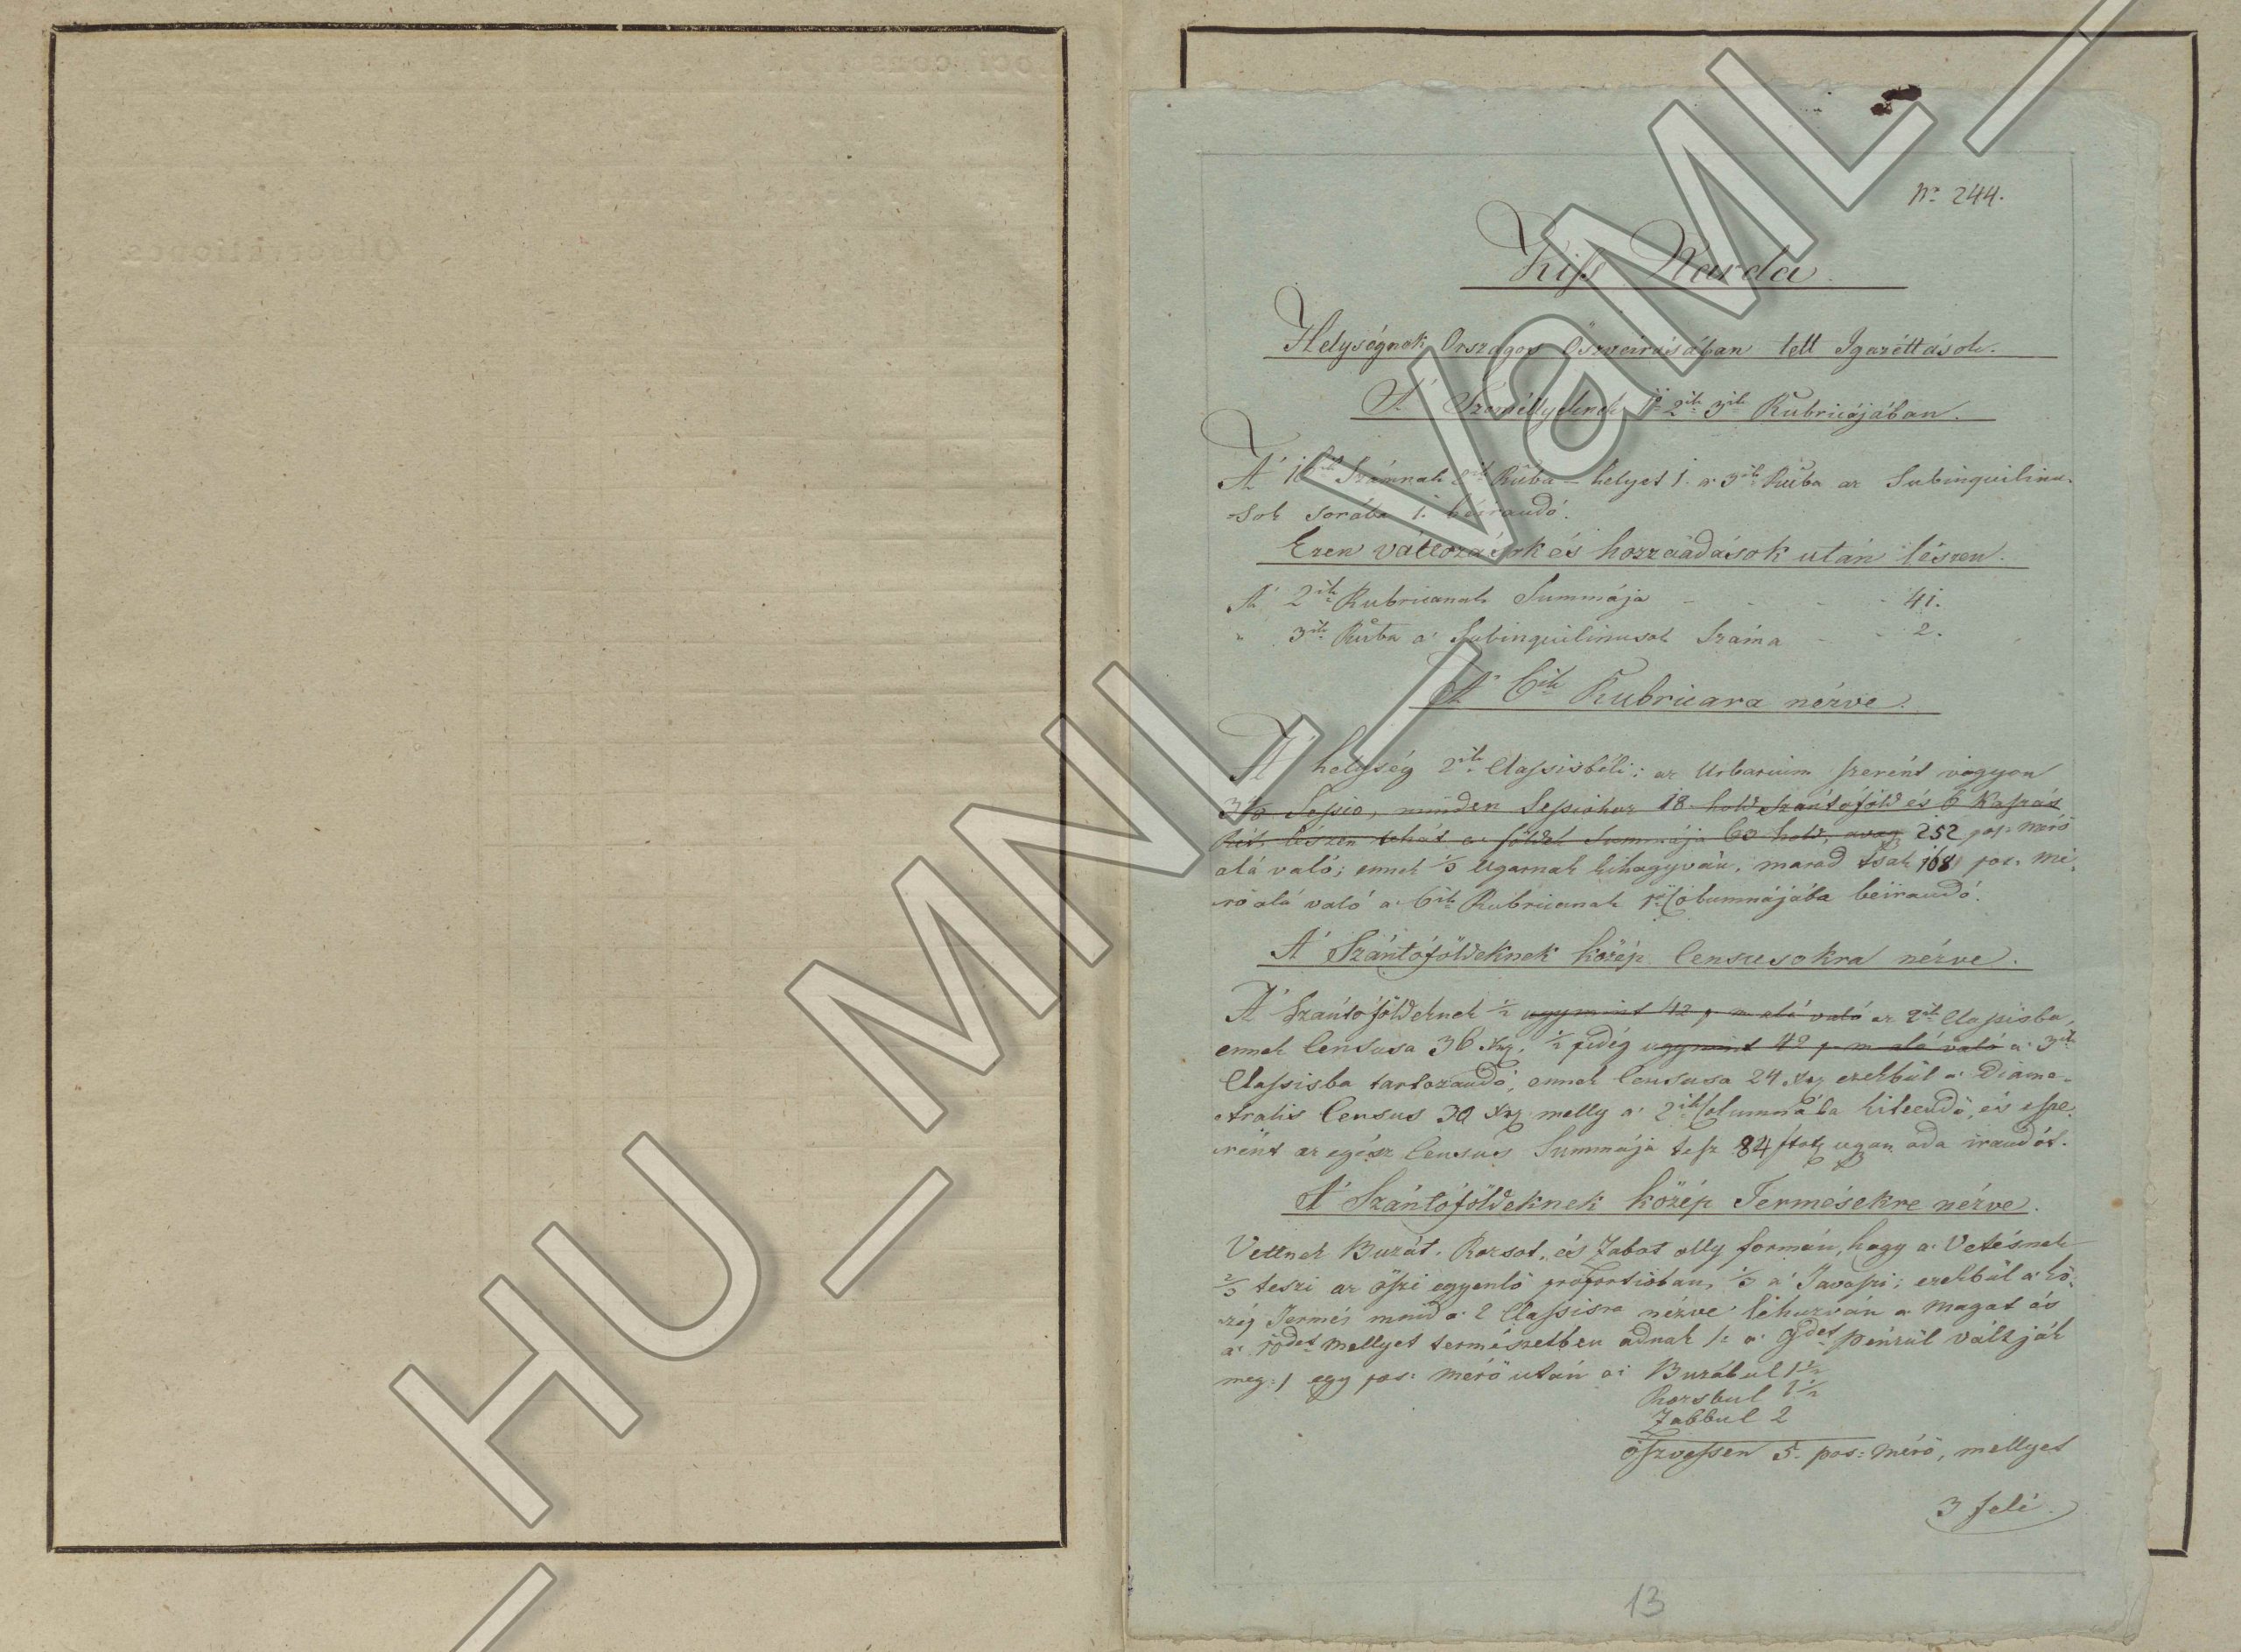 Nº 244.
Kiss Narda
Helységnek Országos Öszveirásában tett Igazéttások.
A' Személlyeknek 1ső 2ik 3ik Rubricájában.
A' 10 Számnak 2ik Rúba helyet 1. a 3ik Rúba az Subinquilinu-
sok sorába 1. béirandó.
Ezen változások és hozzáadások után lészen.
A' 2ik Rubricanak Summája - - - - 41.
" 3ik Rúba a' Subinquilinusok Száma - - 2.
A' 6ik Rubricara nézve.
A' helység 2ik Classisbéli; az Urbarium szerént vagyon
3 Sessio, minden Sessiohoz 18 hold szántóföld és 6 Kaszás
Rét, lészen tehát a földek Summája 60 hold, avagy 252 pos: mérő
alá való; ennek 1/3 Ugarnak kihagyván, marad tsak 168 pos. mé-
rő alá való a 6ik Rubricanak 1ső Columnájába beirandó.
A' Szántóföldeknek közép Censusokra nézve.
A' Szántóföldeknek 1/2 ugymint 42 p. m alá való az 2ik Classisba,
ennek Censusa 36 Xrz, 1/2 pedég ugymint 42 p. m alá való a 3ik
Classisba tartozandó, ennek Censusa 24 Xrz ezekbül a Diame-
tralis Census 30 Xrz melly a' 2ik Columnába kiteendő, és esze-
rént az egész Census Summája tesz 84 ftok ugan oda irandók.
A' Szántóföldeknek közép Termésekre nézve.
Vettnek Buzát, Rozsot, és Zabot olly formán, hogy a' Vetésnek
2/3 teszi az öszi egyenlö proportioban, 1/3 a' Tavaszi; ezekbül a' kö-
zép Termés mind a 2 Classisra nézve lehuzván a magat és
a' 10det mellyet természetben adnak /: a 9det pénzül váltják
meg :/ egy pos: mérő után a: Buzábul 1 1/2
Rozsbul 1 1/2
Zabbul 2
öszvessen 5. pos: mérő, mellyet
3 felé
13
HU_MNL_VaML_